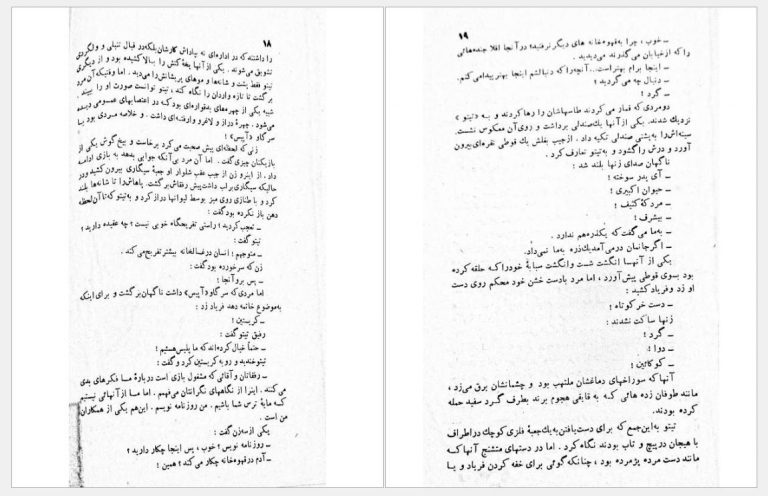 ۱۸
را داشتند که در اداره‌ای نه بپاداش کارشان بلکه در قبال تنبلی و ولگردی
تشویق می‌شوند . یکی از آنها یقهٔ کتش را بالا کشیده بود و از دیگری
تیتو فقط پشت و شانه‌ها و موهای پریشانش را می‌دید . اما وقتیکه آن مرد
برگشت تا تازه واردان را نگاه کند ، تیتو توانست صورت او را ببیند .
شبیه یکی از چهره‌های بدقواره‌ای بود که در اعتصابهای عمومی دیده
می‌شود . چهرهٔ دراز و لاغر و وارفته‌ای داشت . و خلاصه مردی بود با
سر گاو «آپیس» !
زنی که لحظه‌ای پیش صحبت می‌کرد برخاست و بیخ گوش یکی از
بازیکنان چیزی گفت . اما آن مرد بی‌آنکه جوابی بدهد به بازی ادامه
داد . از اینرو زن از جیب عقب شلوار او جعبهٔ سیگاری بیرون کشید و در
حالیکه سیگاری بر لب داشت پیش رفقاش برگشت . پاهاش را تا شانه‌ها بلند
کرد و با طنازی روی میز بوسط لیوانها دراز کرد و به تیتو که تا آن لحظه
دهن باز نکرده بود گفت :
ــ تعجب کردید ؟ راستی تفریحگاه خوبی نیست ؟ چه عقیده دارید ؟
تیتو گفت :
ــ متوجهم ! انسان در غسالخانه بیشتر تفریح می‌کند .
زن که سرخورده بود گفت :
ــ پس برو آنجا !
اما مردی که سر گاو «آپیس» داشت ناگهان برگشت و برای اینکه
به موضوع خاتمه دهد فریاد زد :
ــ کریستین !
رفیق تیتو گفت :
ــ حتماً خیال کرده‌اند که ما پلیس هستیم !
تیتو خندید و رو به کریستین کرد و گفت :
ــ رفقاتان و آقائی که مشغول بازی است دربارهٔ مـا فکرهای بدی
می‌کنند . اینرا از نگاههای نگرانتان می‌فهمم . اما مـا از آنهائی نیستیم
کـه مایهٔ ترس شما باشیم . من روزنامه نویسم . این هم یکی از همکاران
من است .
یکی از سه زن گفت :
ــ روزنامه نویس ؟ خوب ، پس اینجا چکار دارید ؟
ــ آدم در قهوه‌خانه چکار می‌کند ؟ همین !
۱۹
ــ خوب ، چرا به قهوه‌خانه های دیگر نرفتید؛ در آنجا اقلا جنده‌هائی
را که از خیابان می‌گذرند می‌دیدید .
ــ اینجا برام بهتر است... آنچه را که دنبالشم اینجا بهتر پیدا می‌کنم.
ــ دنبال چه می‌گردید ؟
ــ گرد !
دو مردی که قمار می‌کردند طاسهاشان را رها کردند و بـه «تیتو »
نزدیك شدند. یکی از آنها یك صندلی برداشت و روی آن معکوس نشست.
سینه‌اش را به پشتی صندلی تکیه داد . از جیب بغلش یك قوطی نقره‌ای بیرون
آورد و درش را گشود و به تیتو تعارف کرد .
ناگهان صدای زنها بلند شد :
ــ آی پدر سوخته !
ــ حیوان اکبیری !
ــ مردکهٔ کثیف !
ــ بیشرف !
ــ به ما می‌گفت که یکذره هم ندارد .
ــ اگر جانمان در می‌آمد یك ذره به ما نمی‌داد.
یکی از آنهـا انگشت شست وانگشت سبابهٔ خود را کـه حلقه کرده
بود بسوی قوطی پیش آورد ، اما مرد با دست خشن خود محکم روی دست
او زد و فریاد کشید :
ــ دست خر کوتاه !
زنها ساکت نشدند :
ــ گرد !
ــ دوا !
ــ کوکائین !
آنها که سوراخهای دماغشان ملتهب بود و چشمانشان برق می‌زد ،
مانند طوفان زده هائی کـه به قایقی هجوم برند بطرف گـرد سفید حمله
کرده بودند.
تیتو به این جمع که برای دست یافتن به یك جعبهٔ فلزی کوچك در اطراف
با هیجان در پیچ و تاب بودند نگاه کرد . اما در دستهای متشنج آنها کـه
مانند دست مرده پژمرده بود ، چنانکه گوئی برای خفه کردن فریاد و یـا